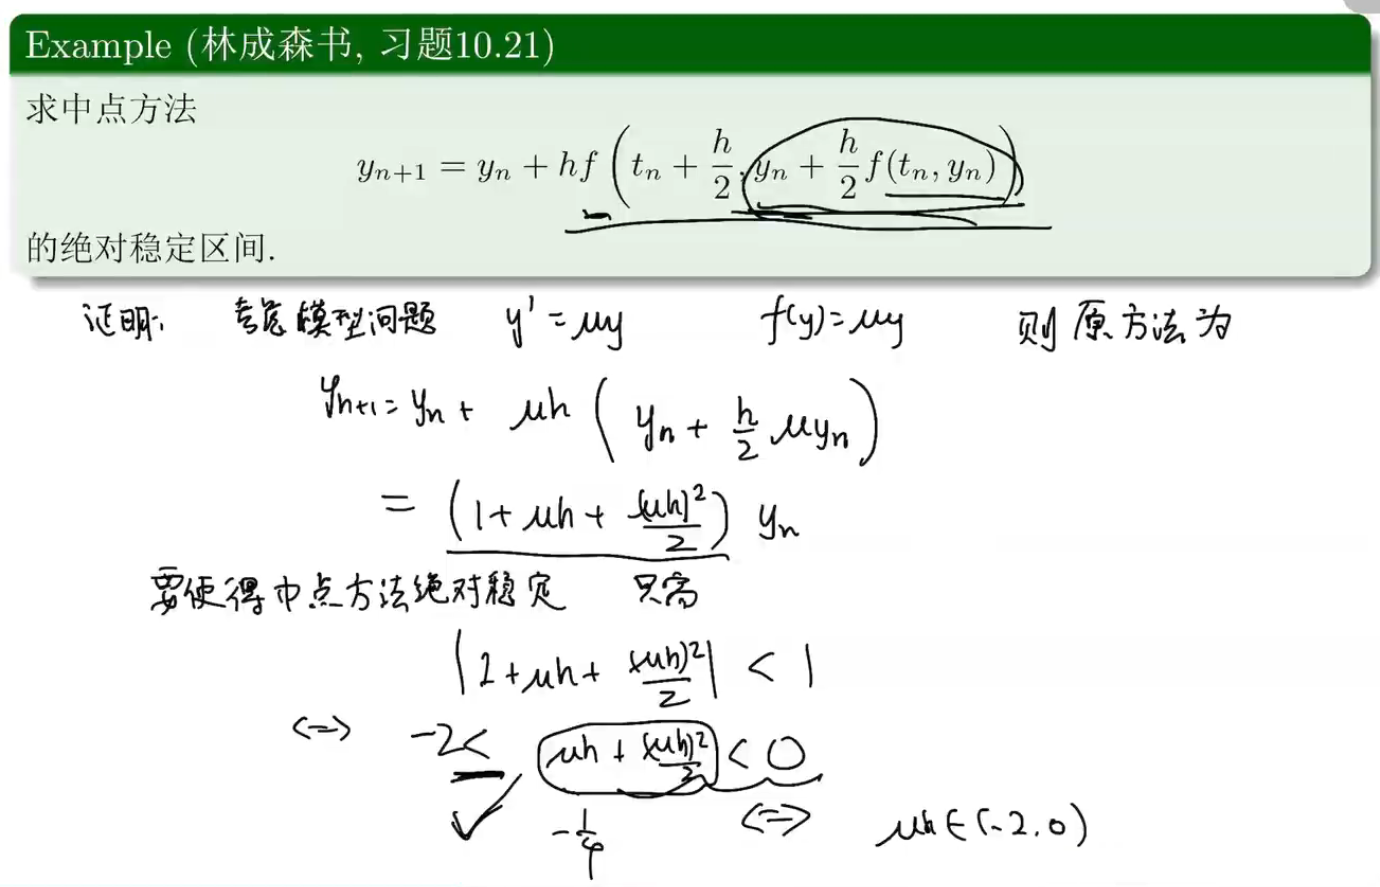 Example (林成森书, 习题10.21)
求中点方法
y_{n+1} = y_n + hf(t_n + h/2, y_n + h/2 f(t_n, y_n))
的绝对稳定区间.
证明: 考虑模型问题 y' = μy f(y) = μy 则原方法为
y_{n+1} = y_n + μh (y_n + h/2 μy_n)
= (1 + μh + (μh)²/2) y_n
要使得中点方法绝对稳定 只需
|1 + μh + (μh)²/2| < 1
<=> -2 < μh + (μh)²/2 < 0
✓ -1/4 <=> μh ∈ (-2, 0)